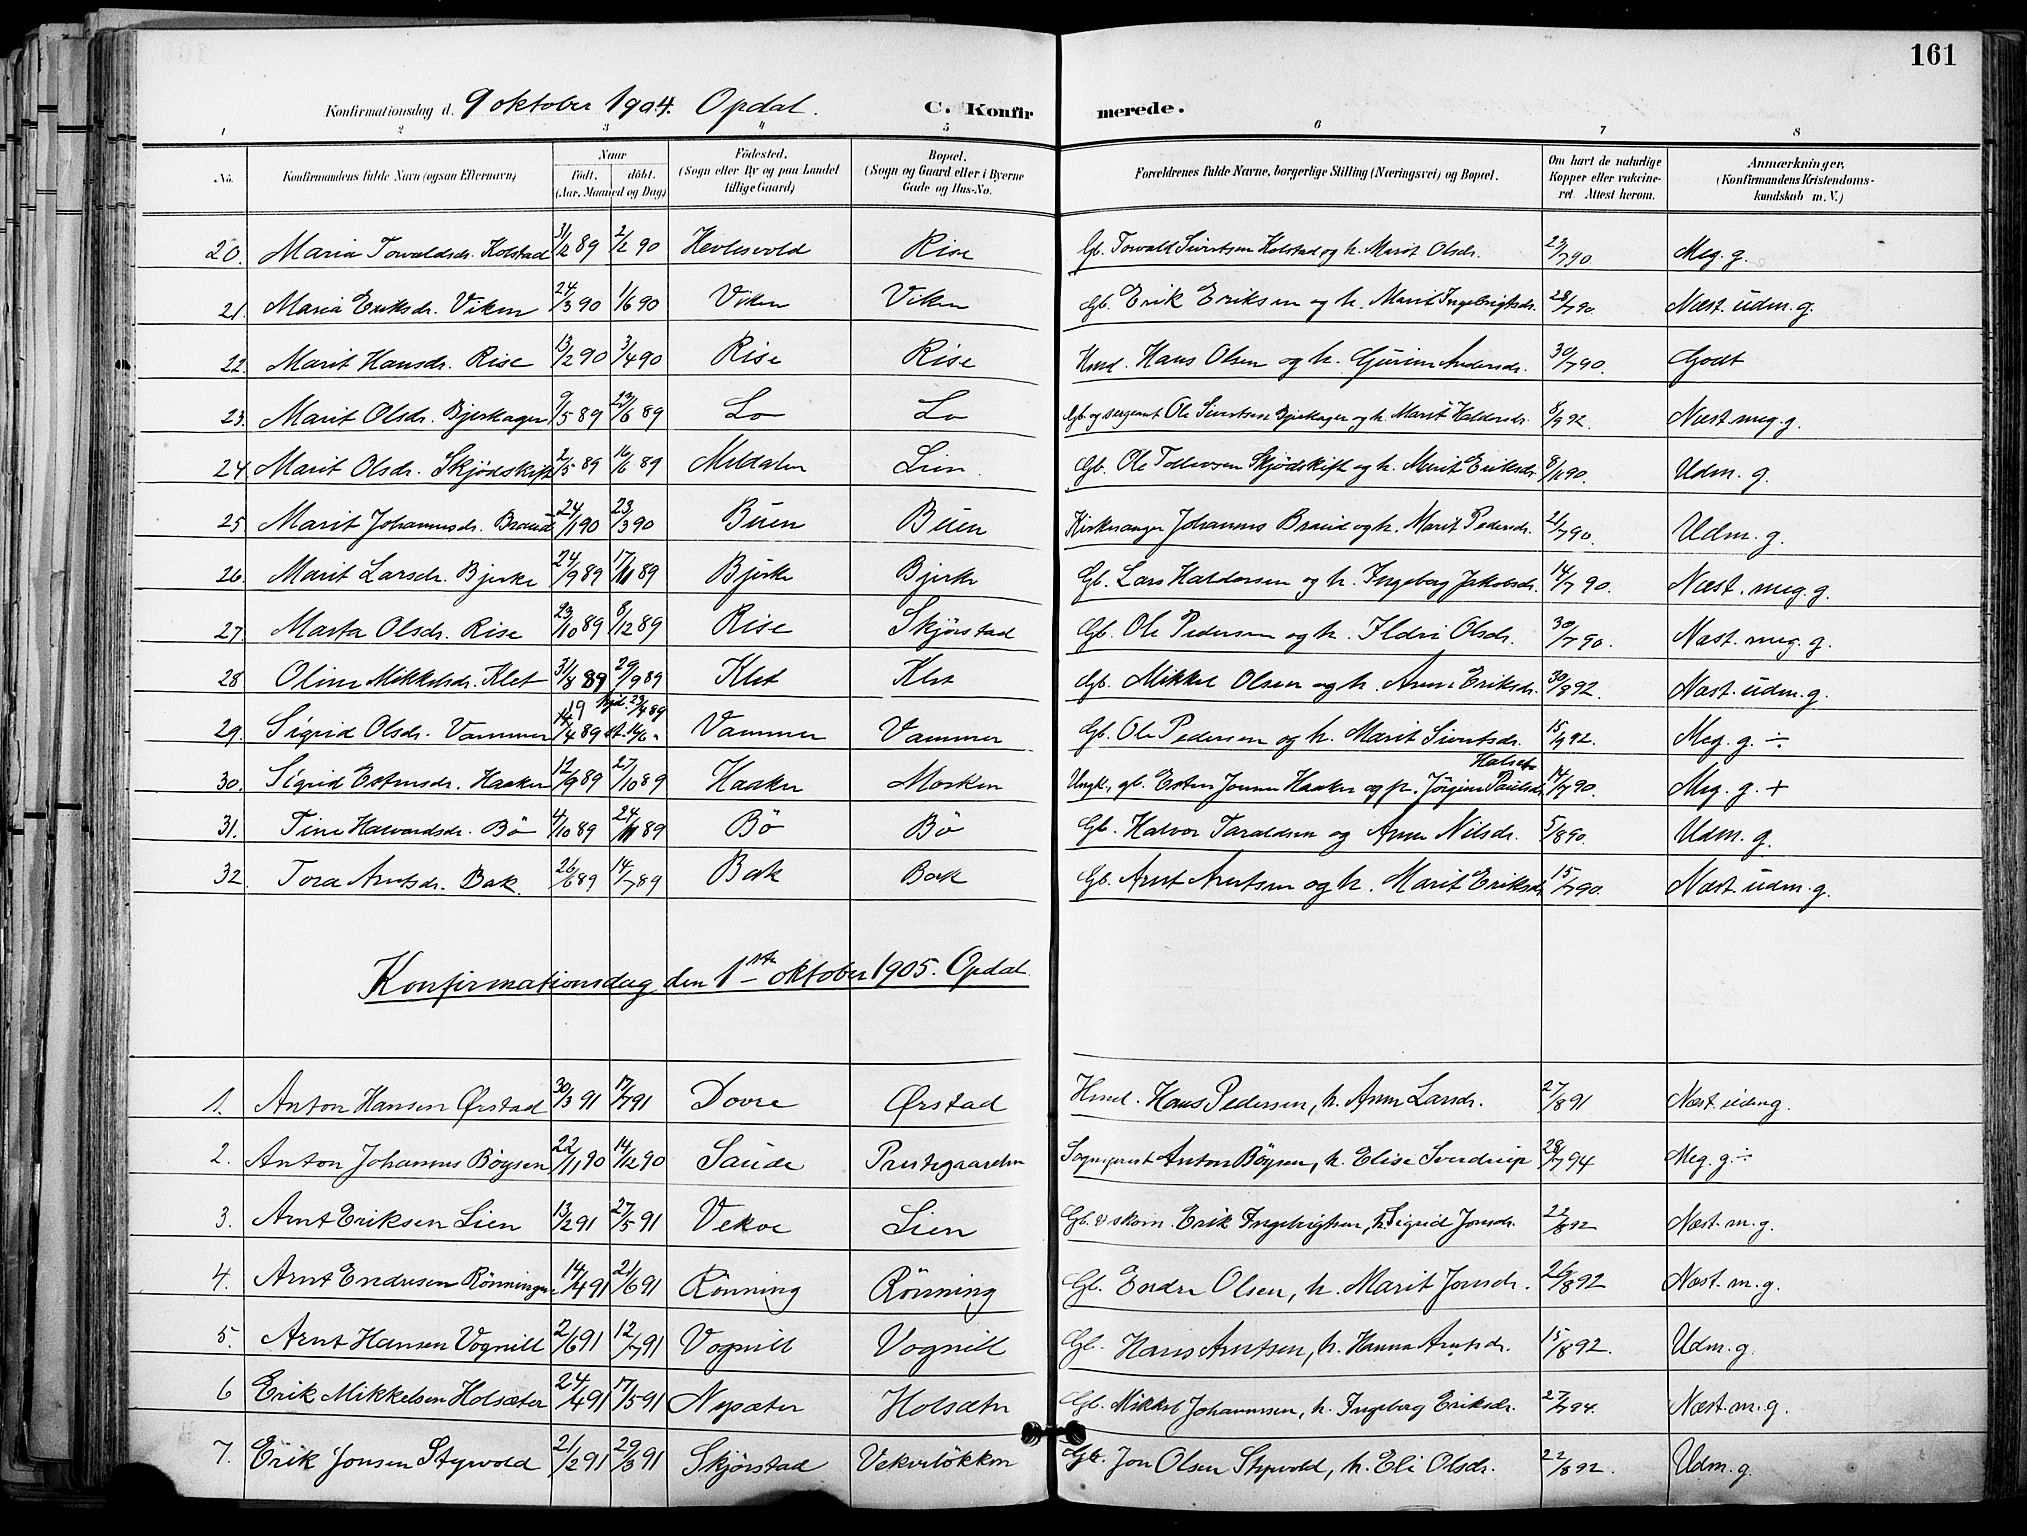 161
Konfirmationsdag d. 9 oktober 1904. Opdal. C. Konfirmerede.
1 2 3 4 5 6 7 8
No. Konfirmandens fulde Navn (ogsaa Efternavn) Naar födt. döbt. (Aar, Maaned og Dag) Födested. (Sogn eller By og paa Landet tillige Gaard) Bopæl. (Sogn og Gaard eller i Byerne Gade og Hus-No. Forældrenes fulde Navne, borgerlige Stilling (Næringsvei) og Bopæl. Om havt de naturlige Kopper eller vakcineret. Attest herom. Anmærkninger, (Konfirmandens Kristendomskundskab m. V.)
20. Maria Torvaldsdr. Kolstad 31/12 89 2/2 90 Hevlesvold Rise Gb. Torvald Sivertsen Kolstad og h. Marit Olsdr. 23/7 90 Meg. g.
21. Maria Eriksdr. Viken 24/3 90 1/6 90 Viken Viken Gb. Erik Eriksen og h. Marit Ingebrigtsdr. 28/7 90. Næst. udm. g.
22. Marit Hansdr. Rise 13/2 90 3/4 90 Rise Rise Hmd. Hans Olsen og h. Gurine Andersdr. 30/7 90. Godt
23. Marit Olsdr. Bjerkager 9/5 89 23/6 89 Lo Lo Gb. og sergeant Ole Sivertsen Bjerkager og h. Marit Haldorsdr. 8/9 92. Næst. meg. g.
24. Marit Olsdr. Skjødskift 2/5 89 16/6 89 Meldalen Lien Gb. Ole Tollevsen Skjødskift og h. Marit Eriksdr. 8/11 90. Udm. g.
25. Marit Johannesdr. Braut 24/1 90 23/3 90 Büen Büen Kirkesanger Johannes Braut og h. Marit Pedersdr. 21/7 90. Udm. g.
26. Marit Larsdr. Bjerke 24/9 89 17/11 89 Bjerke Bjerke Gb. Lars Haldorsen og h. Ingeborg Jakobsdr. 14/7 90. Næst. meg. g.
27. Marta Olsdr. Rise 23/10 89 8/12 89 Rise Skjørstad Gb. Ole Pedersen og h. Ildri Olsdr. 30/7 90. Næst. meg. g.
28 Oline Mikkelsdr. Klet 31/8 89 29/9 89 Klet Klet Gb. Mikkel Olsen og h. Anne Eriksdr. 30/8 92. Næst. udm. g.
29. Sigrid Olsdr. Vammer 14/4 89 hjd. 23/4 89 st. 16/6 " Vammer Vammer Gb. Ole Pedersen og h. Marit Sivertsdr. 15/9 92. Meg. g. ÷
30. Sigrid Estensdr. Haaker 12/9 89 27/10 89 Haaker Morken Ungk., gb. Esten Jonsen Haaker og p. Jørgine Paulsdr. Halset 14/7 90. Meg. g. +
31. Tine Halvardsdr. Bö 4/10 89 24/11 89 Bö Bö Gb. Halvor Taraldsen og Anne Nilsdr. 5/8 90. Udm. g.
32. Tora Arntsdr. Bak. 26/6 89 14/7 89 Bak Bak Gb. Arnt Arntsen og h. Marit Eriksdr. 15/7 90. Næst. udm. g.
Konfirmationsdag den 1ste oktober 1905. Opdal.
1. Anton Hansen Ørstad 30/3 91 17/7 91 Dovre Ørstad Hmd. Hans Pedersen, h. Anne Larsdr. 27/8 91 Næst. udm g.
2. Anton Johannes Böysen 22/11 90 14/12 90 Saude Prestegaarden Sogneprest Anton Böysen, h. Elise Sverdrup 28/7 94 Meg. g. ÷
3. Arnt Eriksen Lien 13/2 91 27/5 91 Vekve Lien Gb. & skom. Erik Ingebrigtsen, h. Sigrid Jonsdr. 22/8 92 Næst. m. g.
4. Arnt Endresen Rönningen 14/4 91 21/6 91 Rönning Rönning Gb. Endre Olsen, h. Marit Jonsdr. 26/8 92 Næst. m. g.
5. Arnt Hansen Vognill 2/6 91 12/7 91 Vognill Vognill Gb. Hans Arntsen, h. Hanna Arntsdr. 15/8 92. Udm. g.
6 Erik Mikkelsen Holsæter 24/4 91 17/5 91 Nysæter Holsæter Gb. Mikkel Johannessen, h. Ingeborg Eriksdr. 27/7 94. Næst. m. g.
7. Erik Jonsen Stenvold 21/2 91 29/3 91 Skjørstad Vekveløkken Gb. Jon Olsen Stenvold, h. Eli Olsdr. 22/8 92. Udm. g.